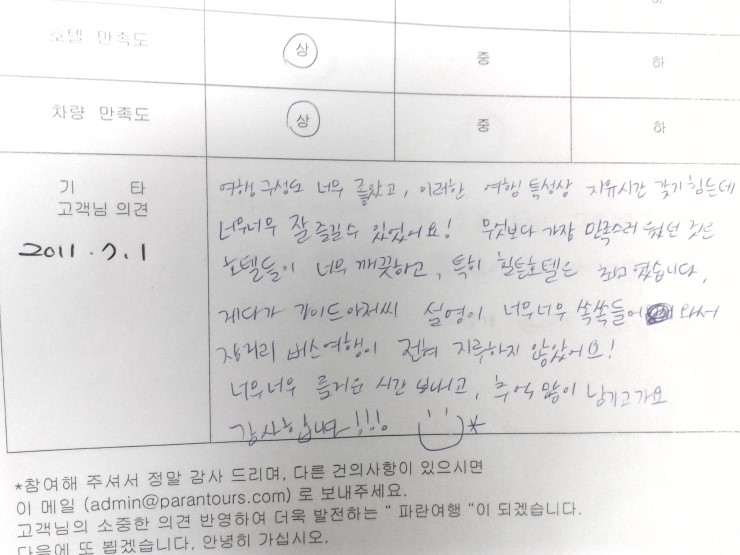 하
호텔 만족도 상 중 하
차량 만족도 상 중 하
기 타
고객님 의견
2011.7.1
여행 구성도 너무 좋았고, 이러한 여행 특성상 자유시간 갖기 힘든데
너무너무 잘 즐길 수 있었어요! 무엇보다 가장 만족스러웠던 것은
호텔들이 너무 깨끗하고, 특히 힐튼호텔은 최고였습니다.
게다가 가이드아저씨 설명이 너무너무 쏙쏙들어와서
장거리 버스여행이 전혀 지루하지 않았어요!
너무너무 즐거운 시간 보내고, 추억 많이 남기고가요
감사합니다!!!
*참여해 주셔서 정말 감사 드리며, 다른 건의사항이 있으시면
이 메일 (admin@parantours.com) 로 보내주세요.
고객님의 소중한 의견 반영하여 더욱 발전하는 “ 파란여행 “이 되겠습니다.
다음에 또 뵙겠습니다. 안녕히 가십시오.